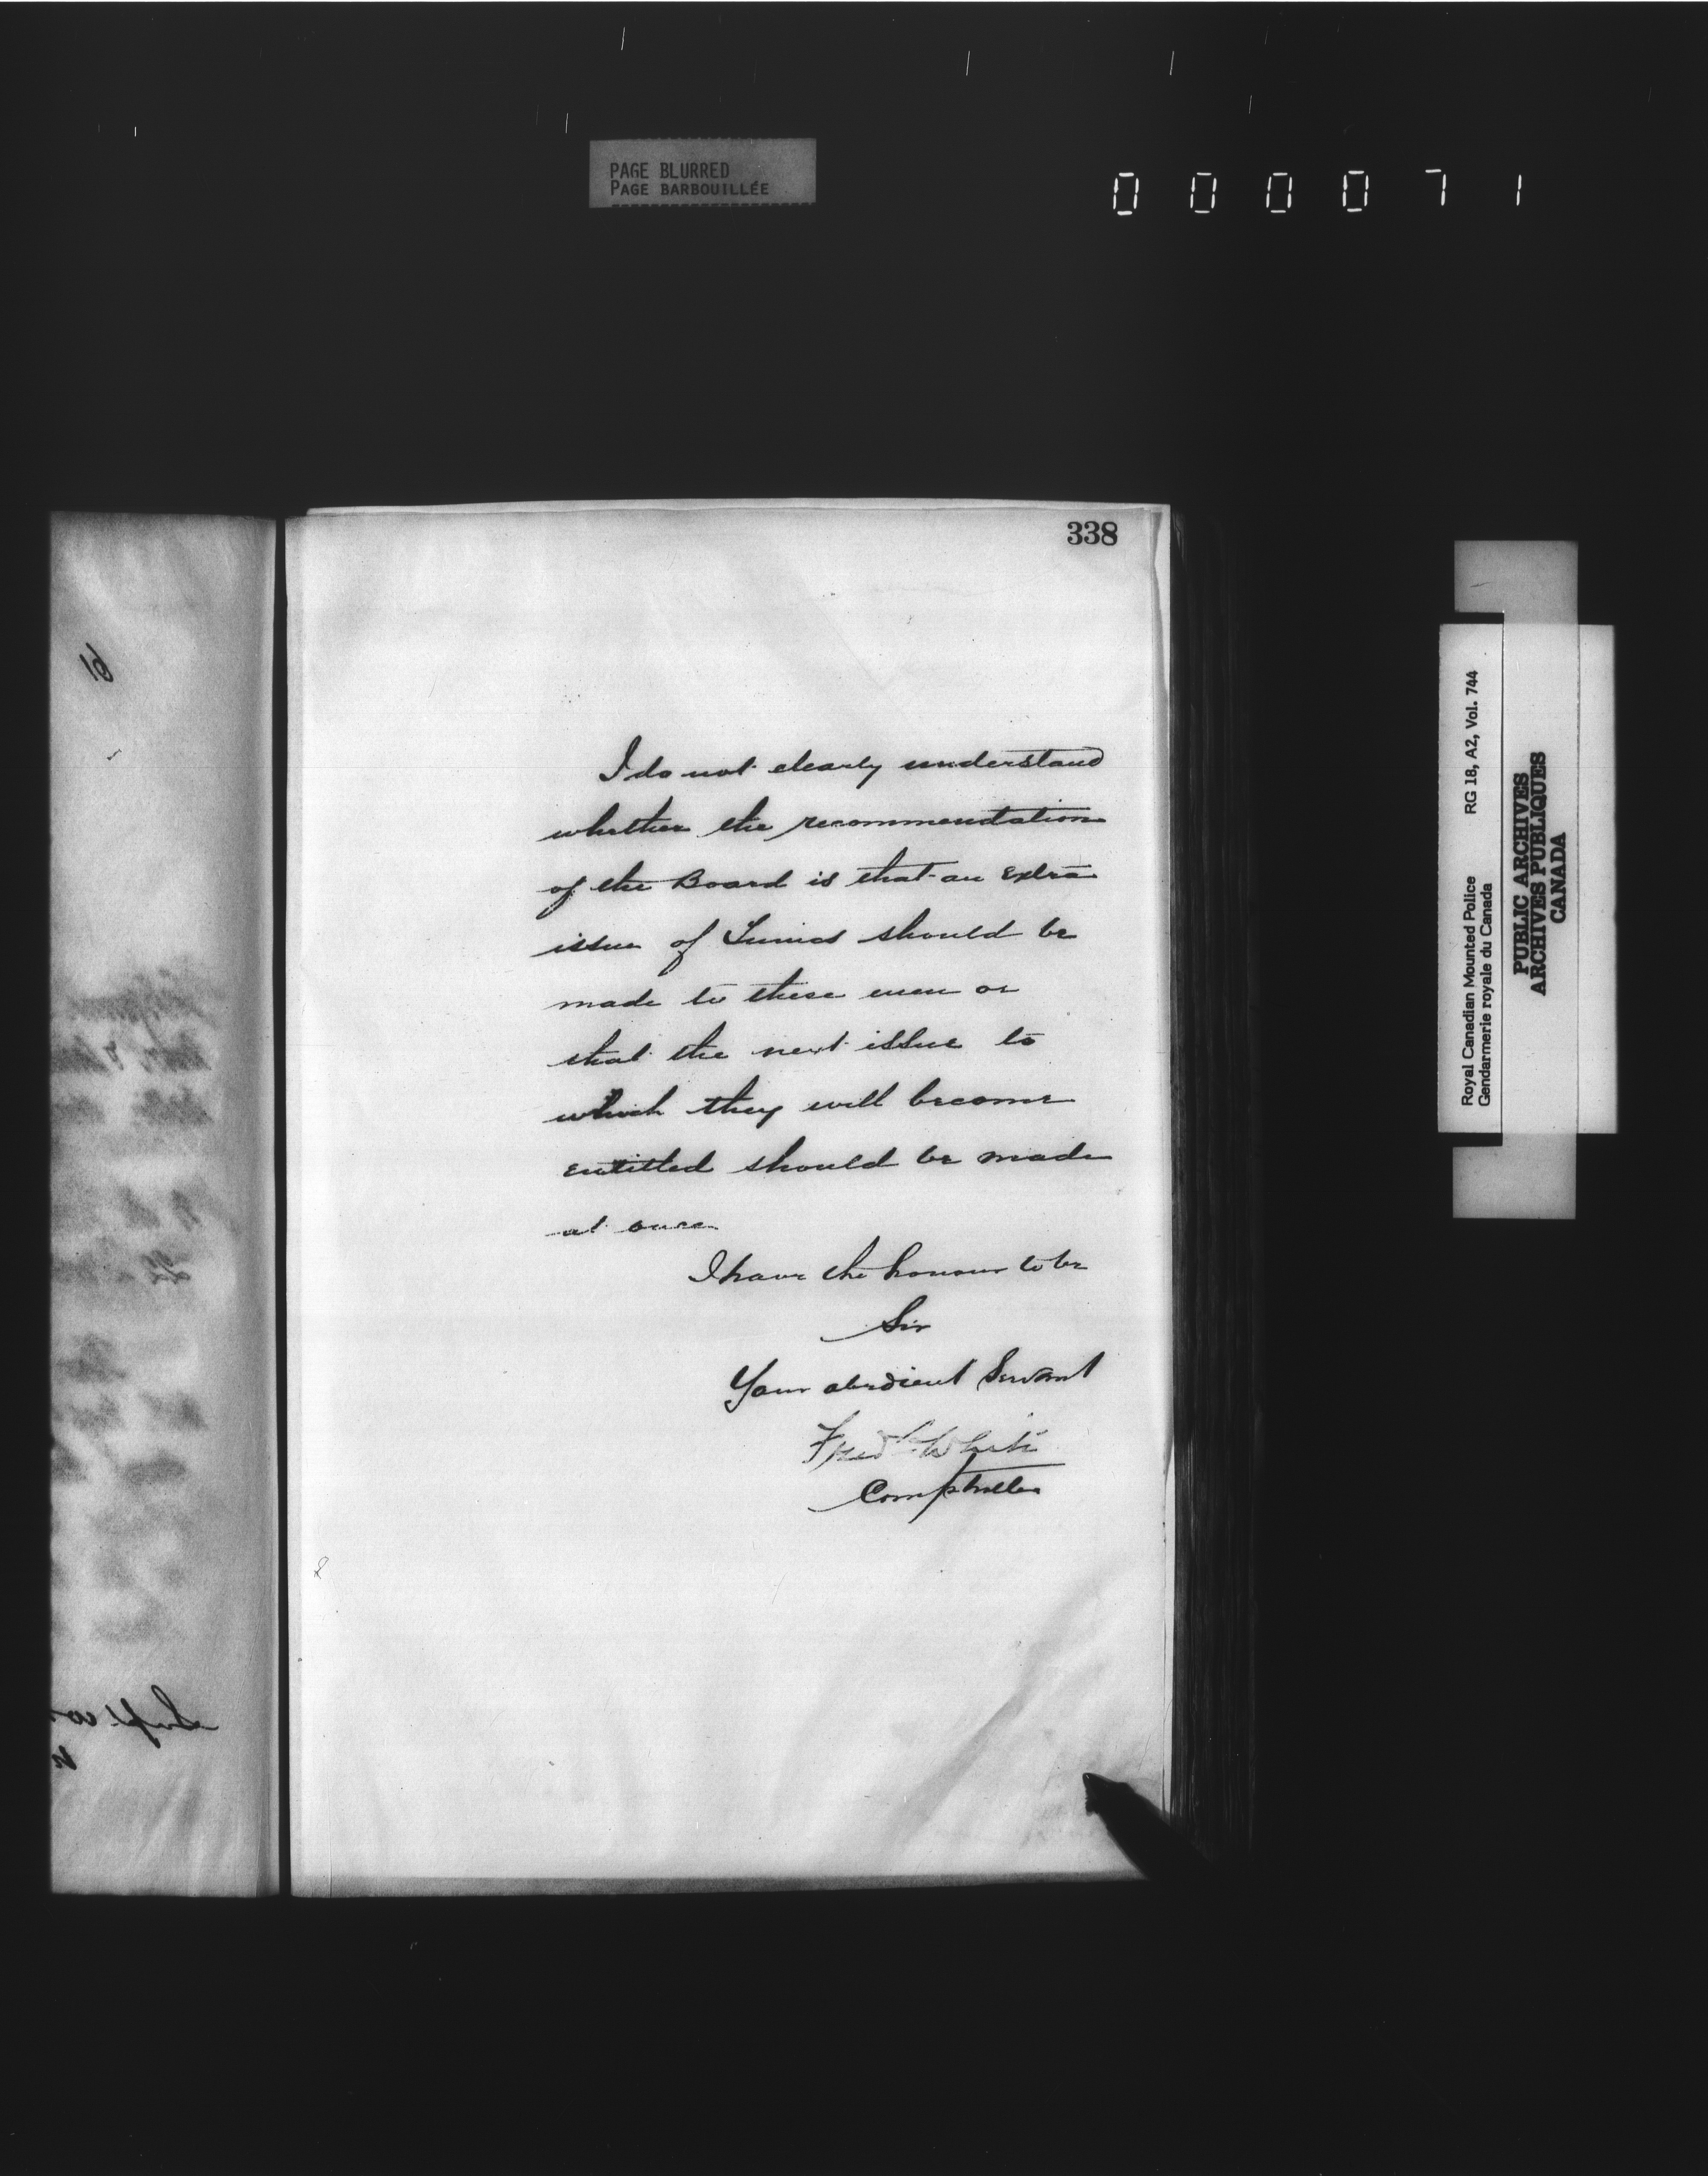 PAGE BLURRED
PAGE BARBOUILLÉE
000071
338
I do not clearly understand
whether the recommendation
of the Board is that an Extra
issue of Tunics should be
made to these men or
that the next issue to
which they will become
entitled should be made
at once
I have the honour to be
Sir
Your obedient Servant
Fred White
Comptroller
Royal Canadian Mounted Police RG 18, A2, Vol. 744
Gendarmerie royale du Canada
PUBLIC ARCHIVES
ARCHIVES PUBLIQUES
CANADA